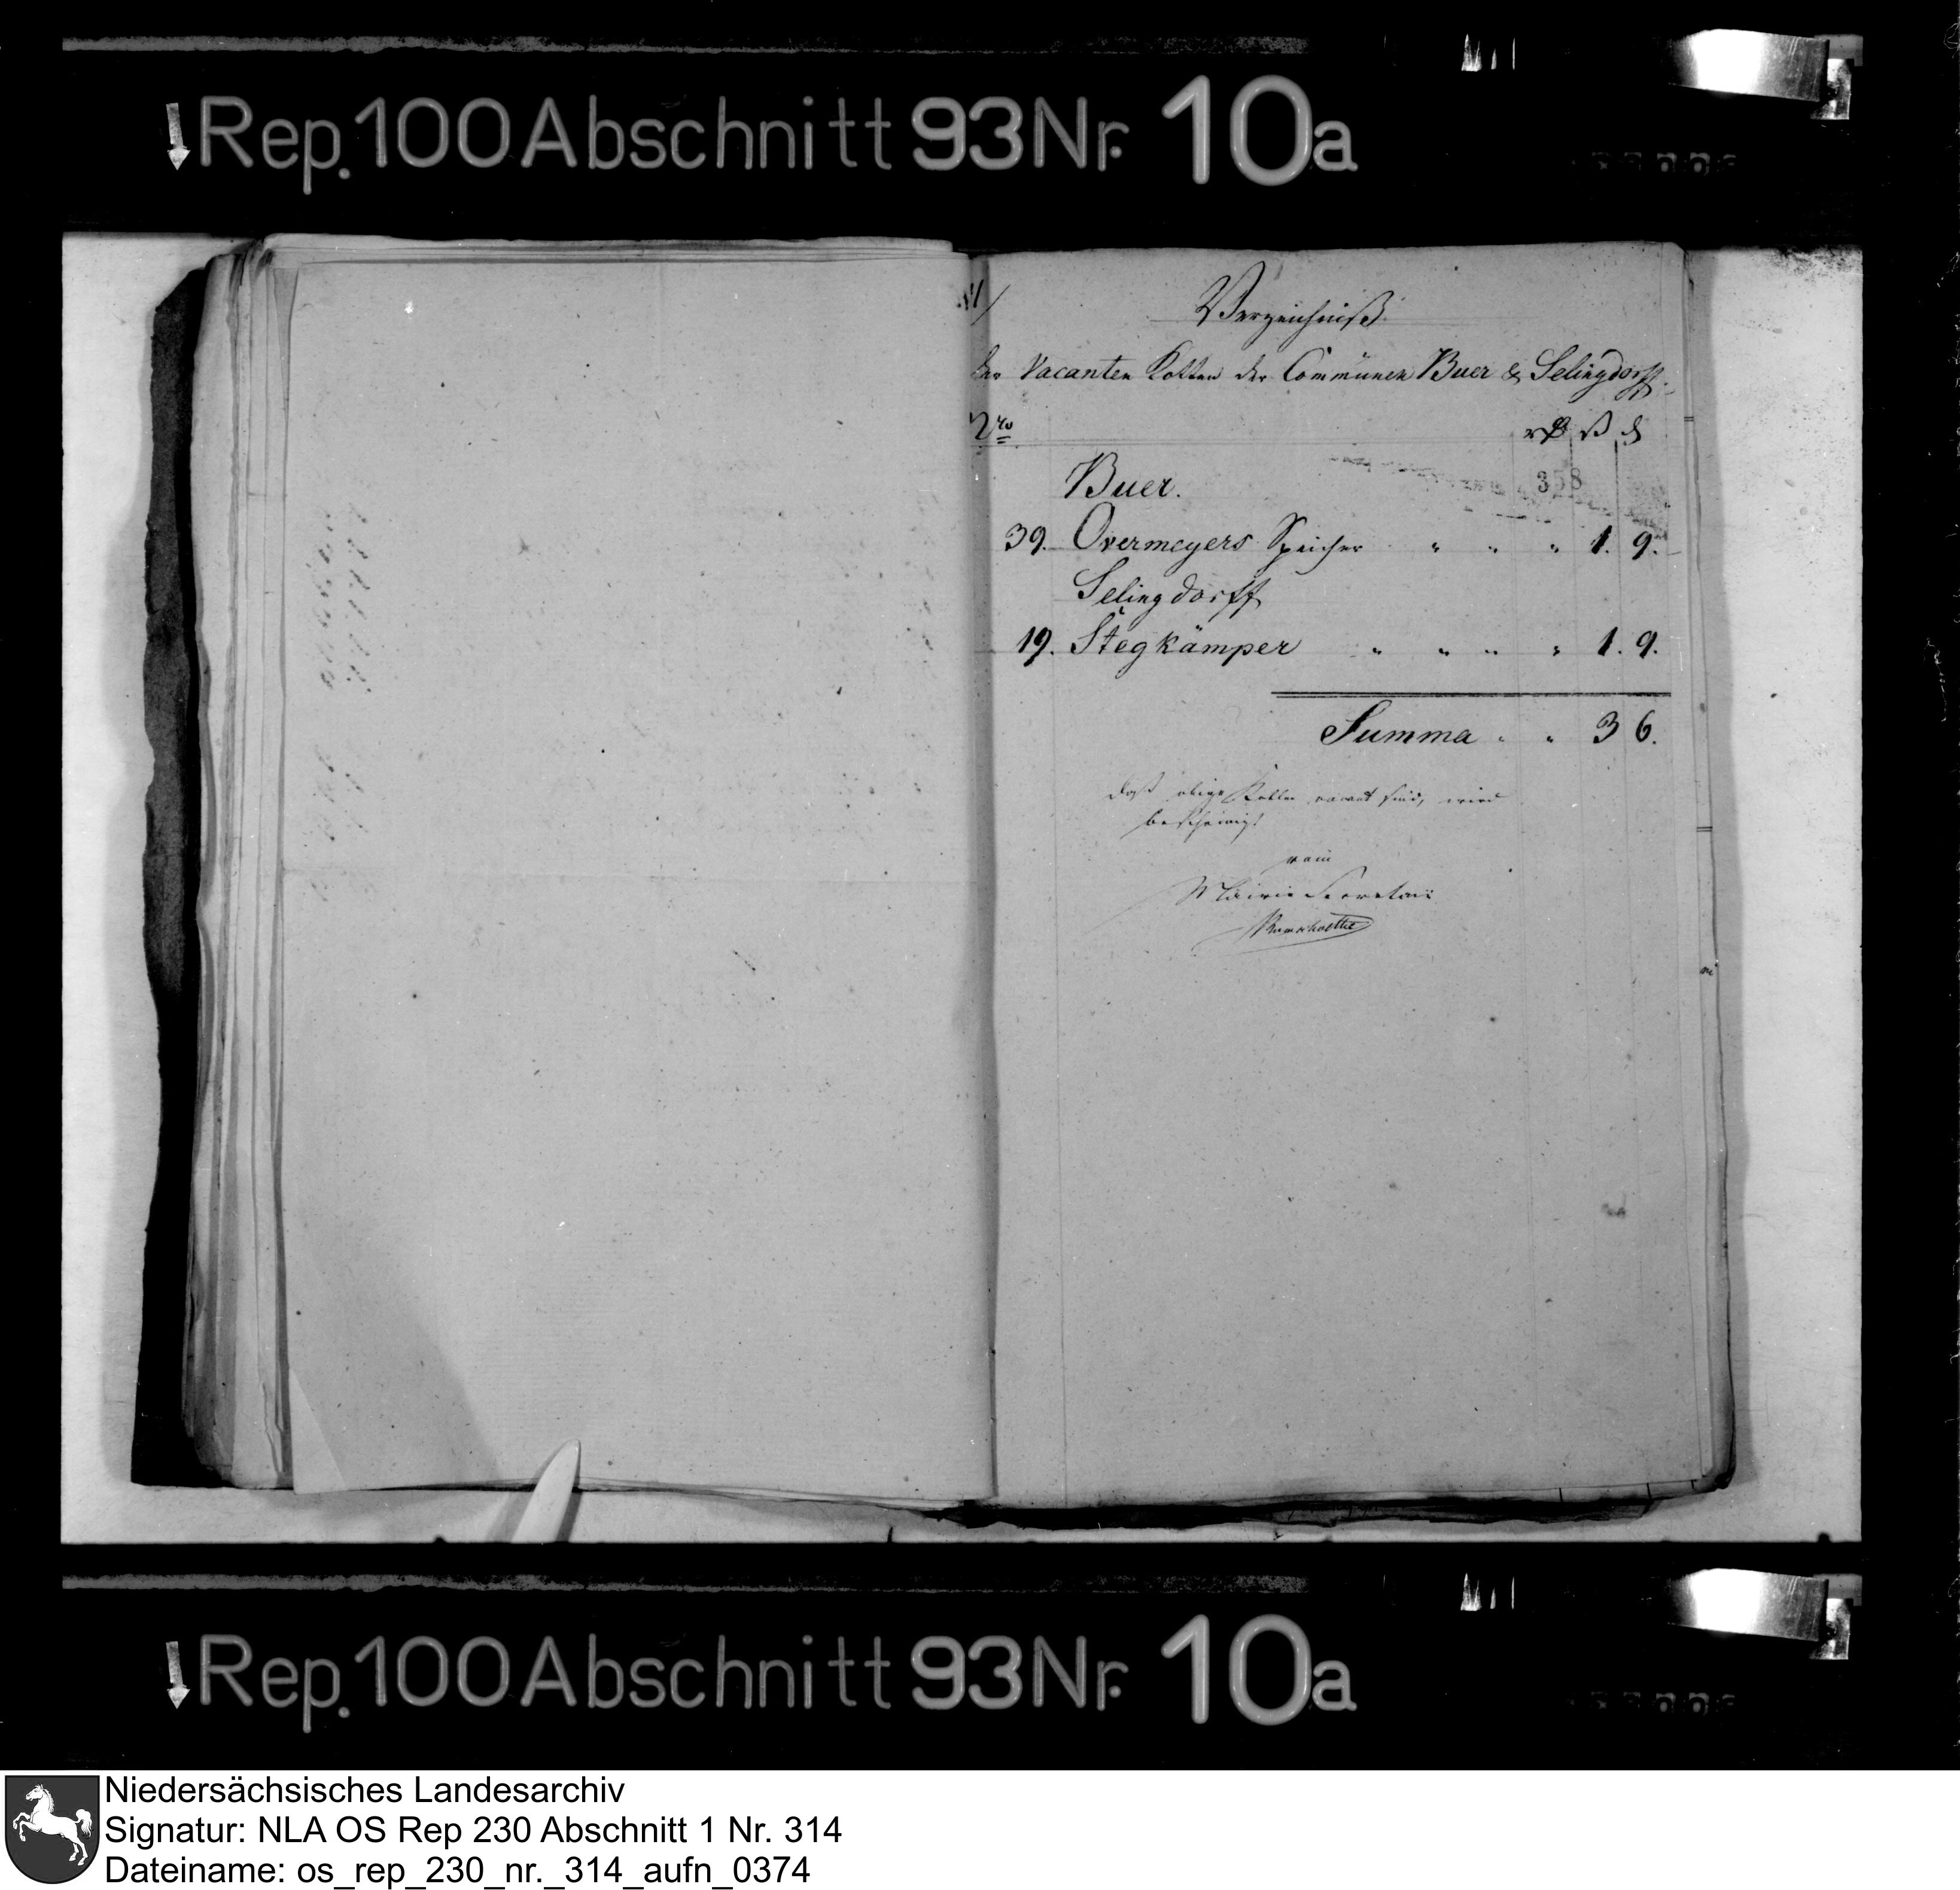 Rep. 100 Abschnitt 93 Nr. 10a
Verzeichniß
der Vacanten Kotten der Communen Buer & Selingdorff.
Nro
358
Buer.
39. Overmeyers Speicher " " " 1. 9.
Selingdorff
19. Stegkämper " " " " 1. 9.
Summa " " 3 6.
Daß obige Kotten vacant sind, wird
bescheinigt
vom
Mairie Secretair
Rep. 100 Abschnitt 93 Nr. 10a
Niedersächsisches Landesarchiv
Signatur: NLA OS Rep 230 Abschnitt 1 Nr. 314
Dateiname: os_rep_230_nr._314_aufn_0374